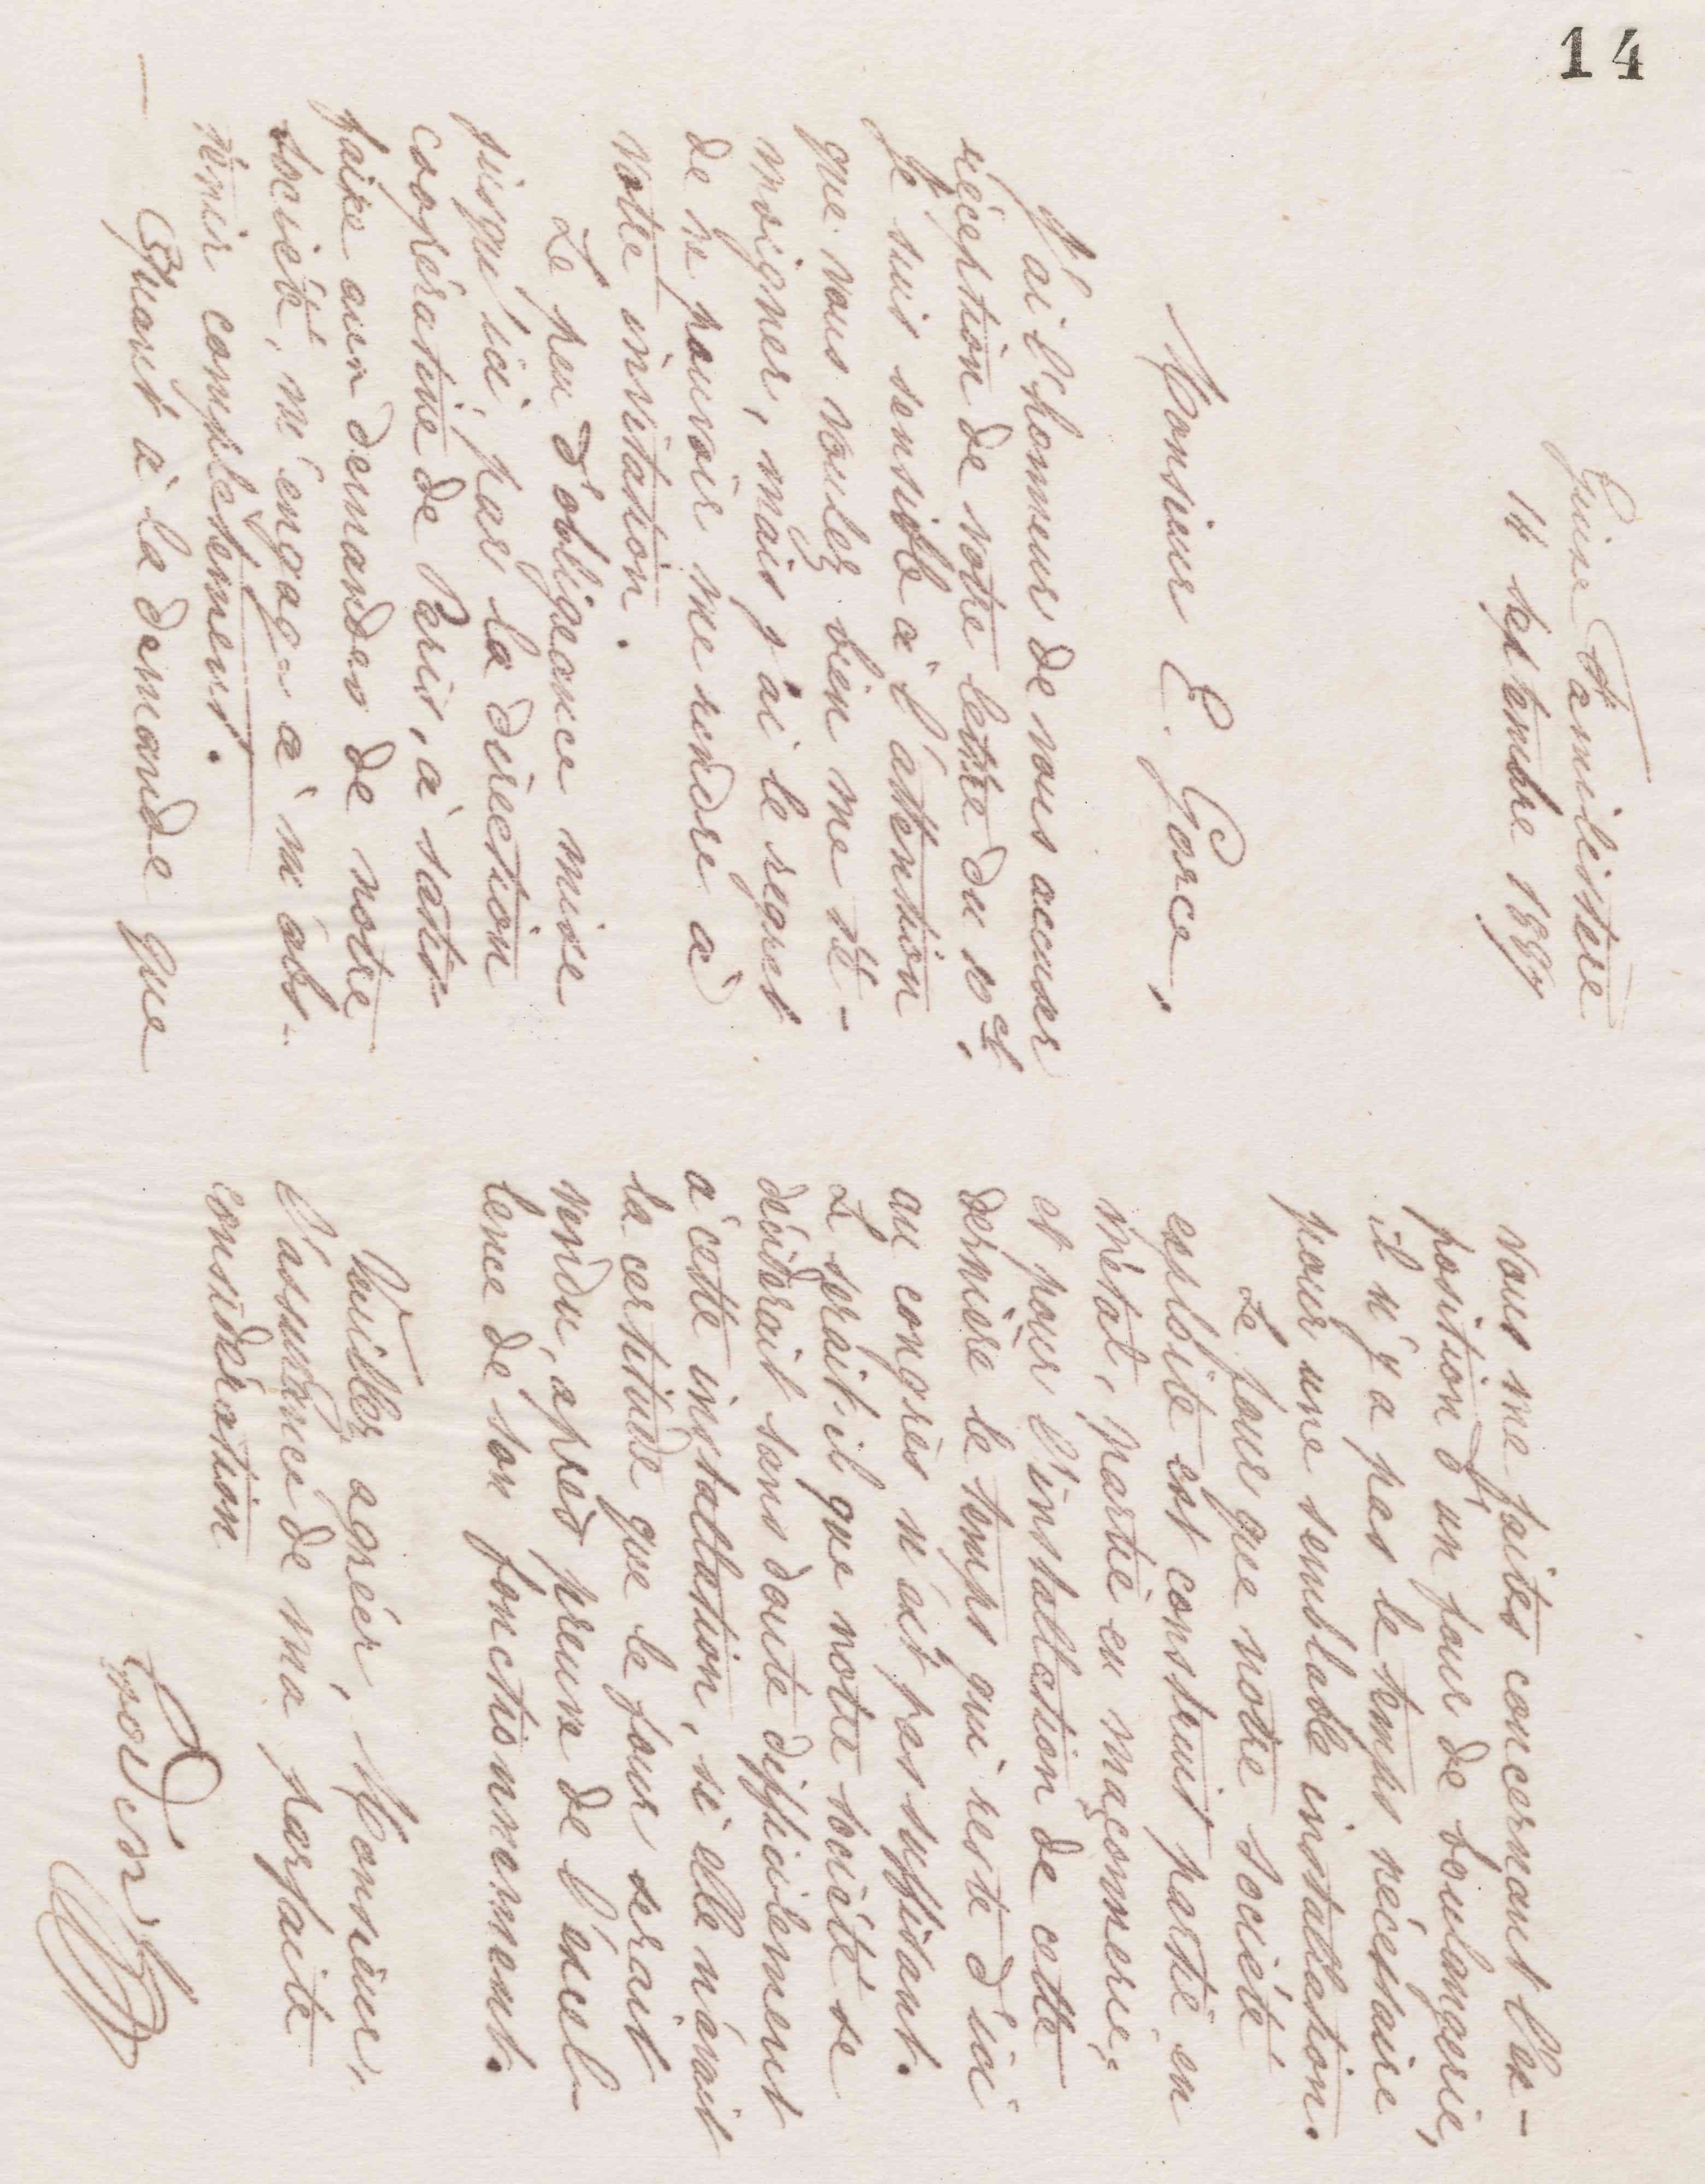 14
Guise Familistère
14 septembre 1887
Monsieur E. Gorce,
J'ai l'honneur de vous accuser
réception de votre lettre du 10 ct.
Je suis sensible à l'attention
que vous voulez bien me té-
moigner, mais j'ai le regret
de ne pouvoir me rendre à
votre invitation.
Le peu d'obligeance mise
jusqu'ici, par la direction
coopérative de Paris, à satis-
faire aux demandes de notre
société, m'engage à m'abs-
tenir complètement.
Quant à la demande que
vous me faites concernant l'ex-
position d'un four de boulangerie,
il n'y a pas le temps nécessaire
pour une semblable installation.
Le four que notre société
exploite est construit partie en
métal, partie en maçonnerie;
et pour l'installation de cette
dernière le temps qui reste d'ici
au congrès n'est pas suffisant.
Le serait-il que notre société se
déciderait sans doute difficilement
à cette installation, si elle n'avait
la certitude que le four serait
vendu, après preuve de l'excel-
lence de son fonctionnement.
Veuillez agréer, Monsieur,
l'assurance de ma parfaite
considération
Godin